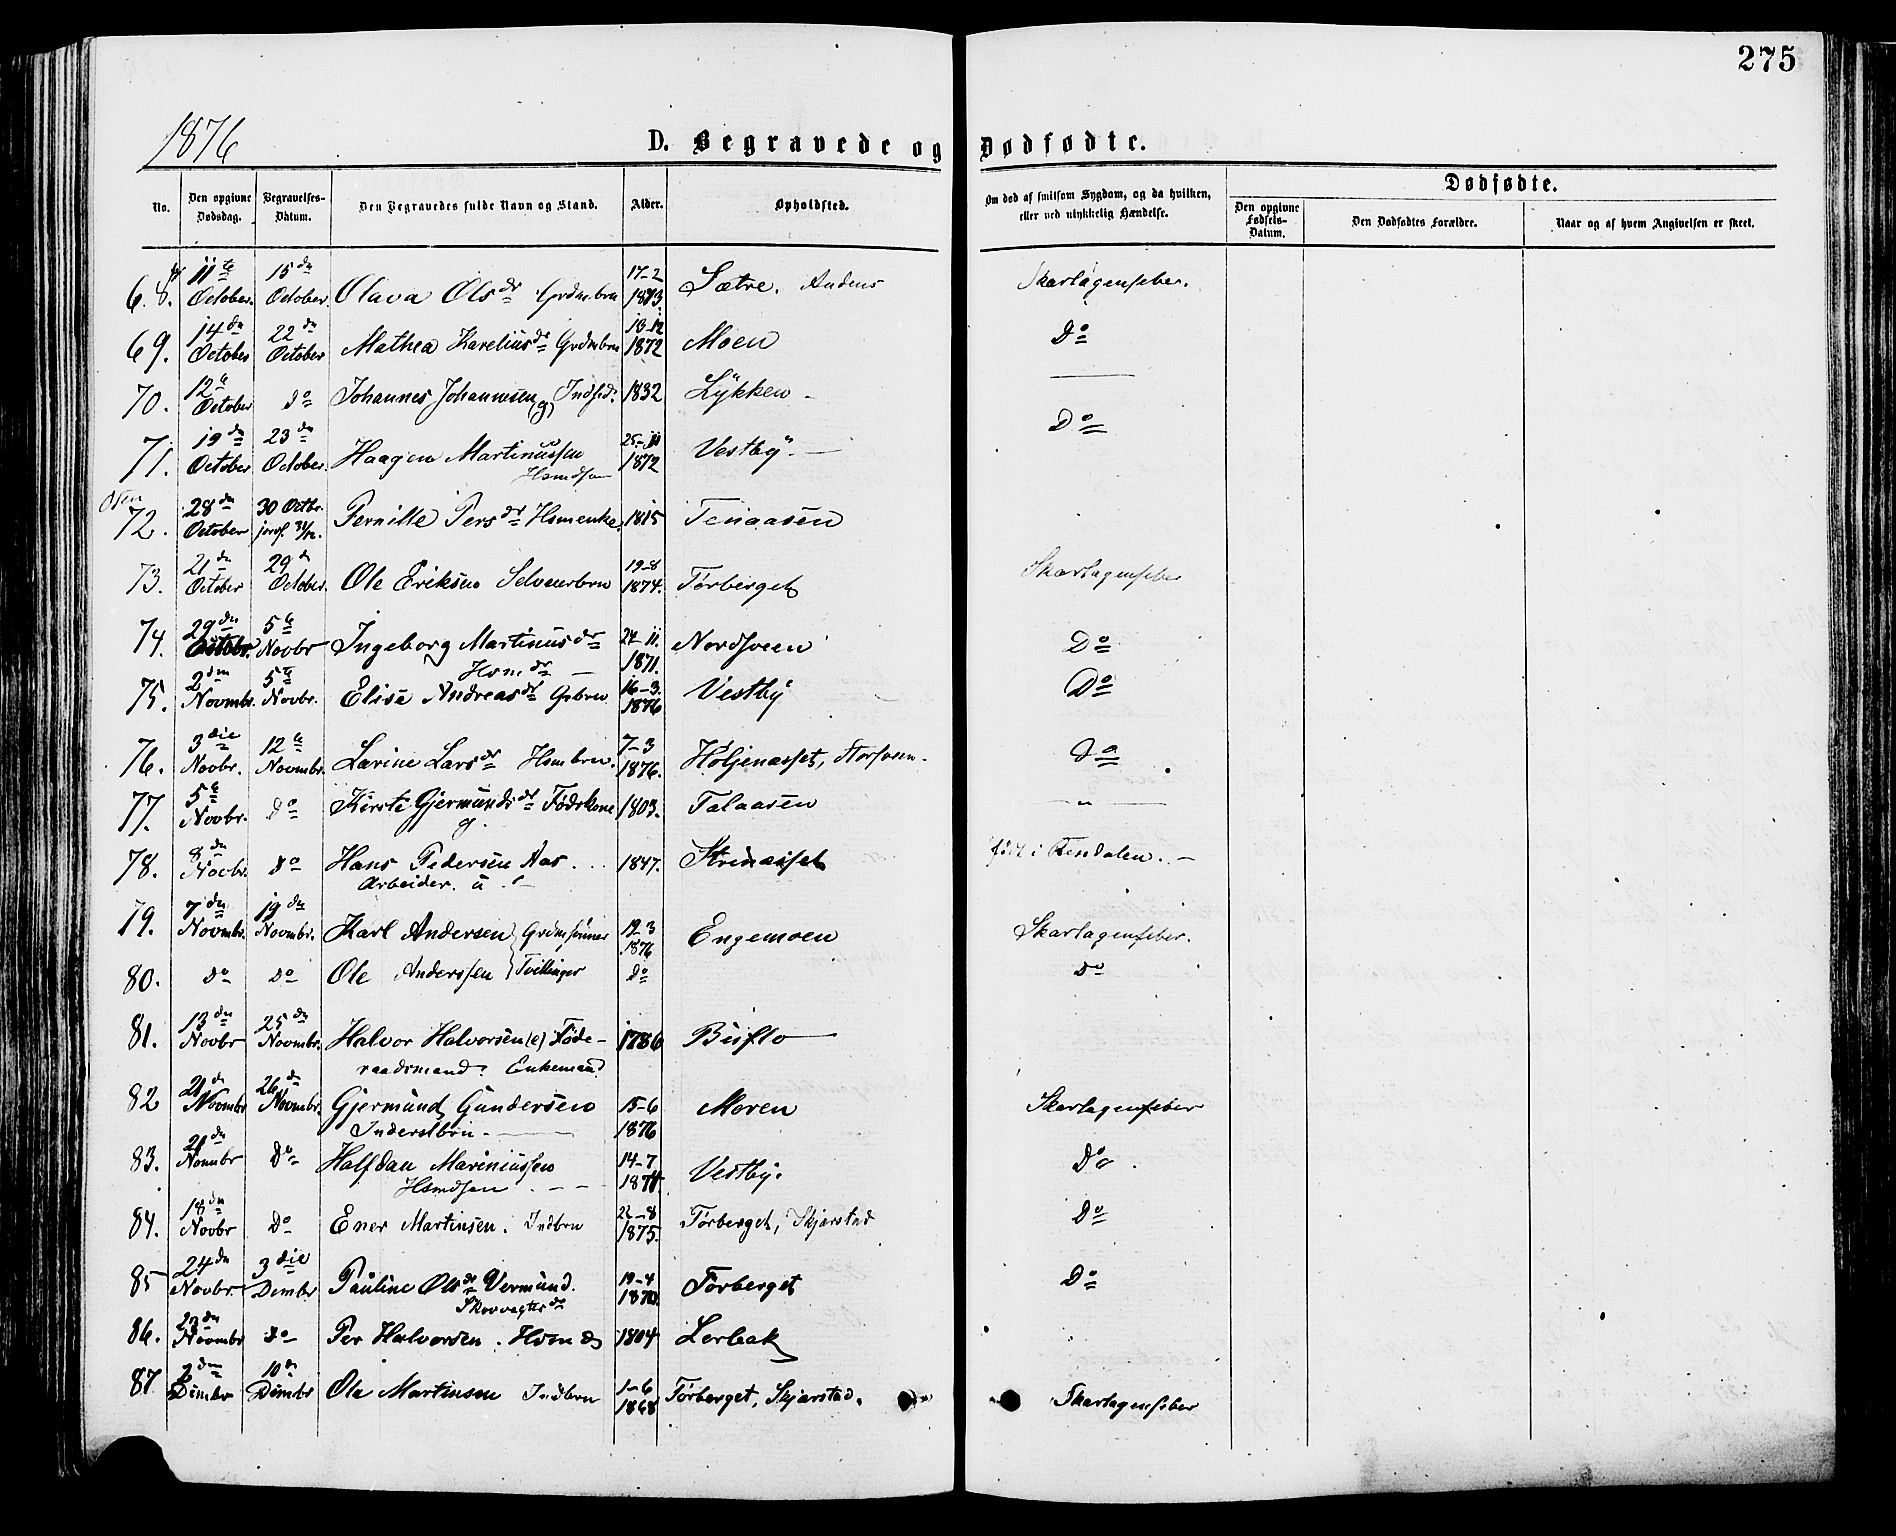 275
1876
D. Begravede og Dødfødte.
No. Den opgivne Dødsdag. Begravelses-Datum. Den Begravedes fulde Navn og Stand. Alder. Opholdsted. Om død af smitsom Sygdom, og da hvilken, eller ved ulykkelig Hændelse. Dødfødte.
Den opgivne Fødsels-Datum. Den Dødfødtes Forældre. Naar og af hvem Angivelsen er skeet.
68. 11te October. 15dn October Olava Olsdr Grdmbrn 17-2 1873 Sætre. Skarlagensfeber.
69. 14dn October 22dn October Mathea Kareliusdr Grdmbrn 1872 Moen Do
70. 12te October Do Johannes Johannesen (g) Indsid. 1832 Lykken - —
71. 19dn October 23dn October. Haagen Martinussen Hsmdsøn 25-11 1872 Vestby. — Do
72. 28dn October 30 Octbr. Pernille Persdr Hsmenke. 1815 Tenaasen
73. 21dn October 29d October. Ole Eriksen Selveierbrn 19-8 1874. Tørberget Skarlagensfeber
74. 29dn Octobr. 5te Novbr Ingeborg Martinusdr Hsmdr — 24-11. 1871. Nordsveen Do
75. 2dn Novmbr. 5te Novbr. Elise Andreasdr Grbrn 16-3. 1876 Vestby Do
76. 3die Novbr. 12te Novmbr. Larine Larsdr Hsmbrn. 7-3 1876. Høljenæsset, Storsveen. Do
77. 5te Novbr. Do Kirsti Gjermundsdr Fødskone g. 1803. Talaasen — " —
78. 8dn Novbr. Do Hans Pedersen Aas. Arbeider. u. 1847. Strenæsset født i Rendalen. -
79. 7dn Novmbr. 19dn Novmbr. Karl Andersen } Grdmsønner 19-3 1876 Engemoen Skarlagensfeber.
80. Do Do Ole Anderssen } Tvillinger Do Do
81. 13dn Novbr 25dn Novmbr. Halvor Halvorsen (e) Føde- 1786 Buflo
raadsmand. Enkemand
82 21dn Novmbr 26dn Novmbr. Gjermund Gundersen 15-6 1876 Moren Skarlagensfeber
Inderstbrn. —
83. 21dn Novmbr Do Halfdan Mariniussen Hsmdsøn 14-7 1874. Vestby. Do.
84. 18dn Novbr Do Ener Martinsen. Indbrn 22-8 1875. Tørberget, Skjærstad Do
85 24dn Novbr. 3die Dcmbr Pauline Olsdr Vermund. Skovvogterdr 19-4 1870. Tørberget Do
86. Novmbr Do Per Halvorsen. Hsmd 1804 Lerbak
87 2dn Dcmbr 10d Dcmbr Ole Martinsen Indbrn 1-6 1868 Tørberget, Skjærstad. Skarlagensfeber